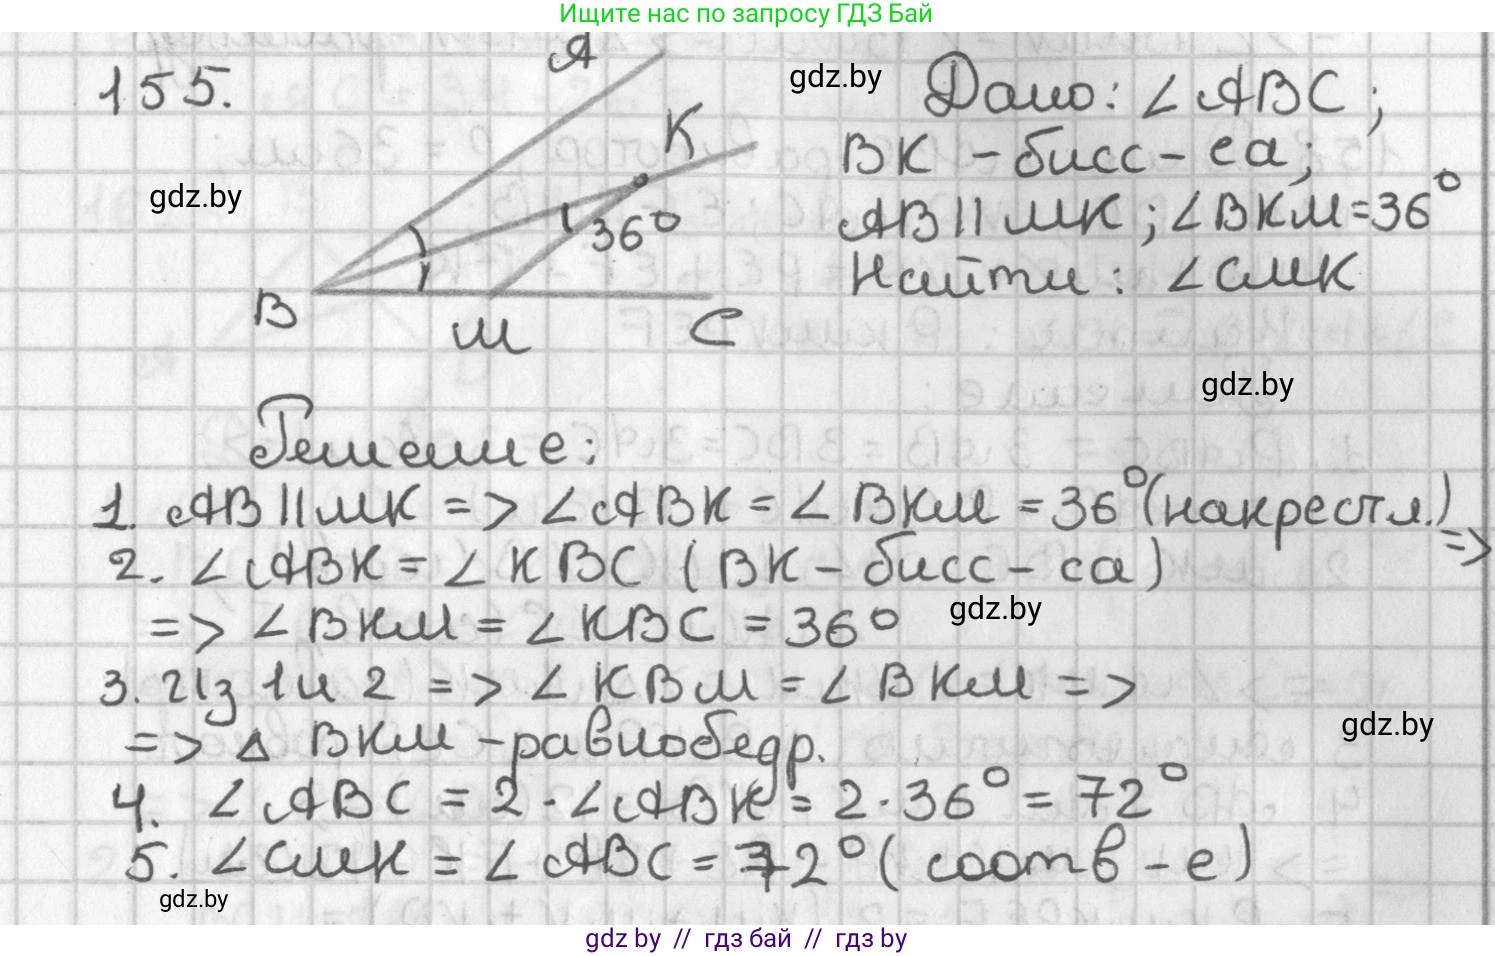 Ищите нас по запросу ГДЗ Бай
155.
A
K
36°
B
M
C
gdz.by
gdz.by
Дано: ∠ABC;
BK - бисс-са;
AB||MK; ∠BKM=36°
Найти: ∠CMK
gdz.by
Решение:
1. AB||MK => ∠ABK = ∠BKM = 36° (накрест л.)
2. ∠ABK = ∠KBC (BK - бисс-са) =>
=> ∠BKM = ∠KBC = 36°
gdz.by
3. Из 1 и 2 => ∠KBM = ∠BKM =>
=> △ BKM - равнобедр.
gdz.by
4. ∠ABC = 2·∠ABK = 2·36° = 72°
5. ∠CMK = ∠ABC = 72° (соотв-е)
gdz.by
gdz by // гдз бай // гдз by